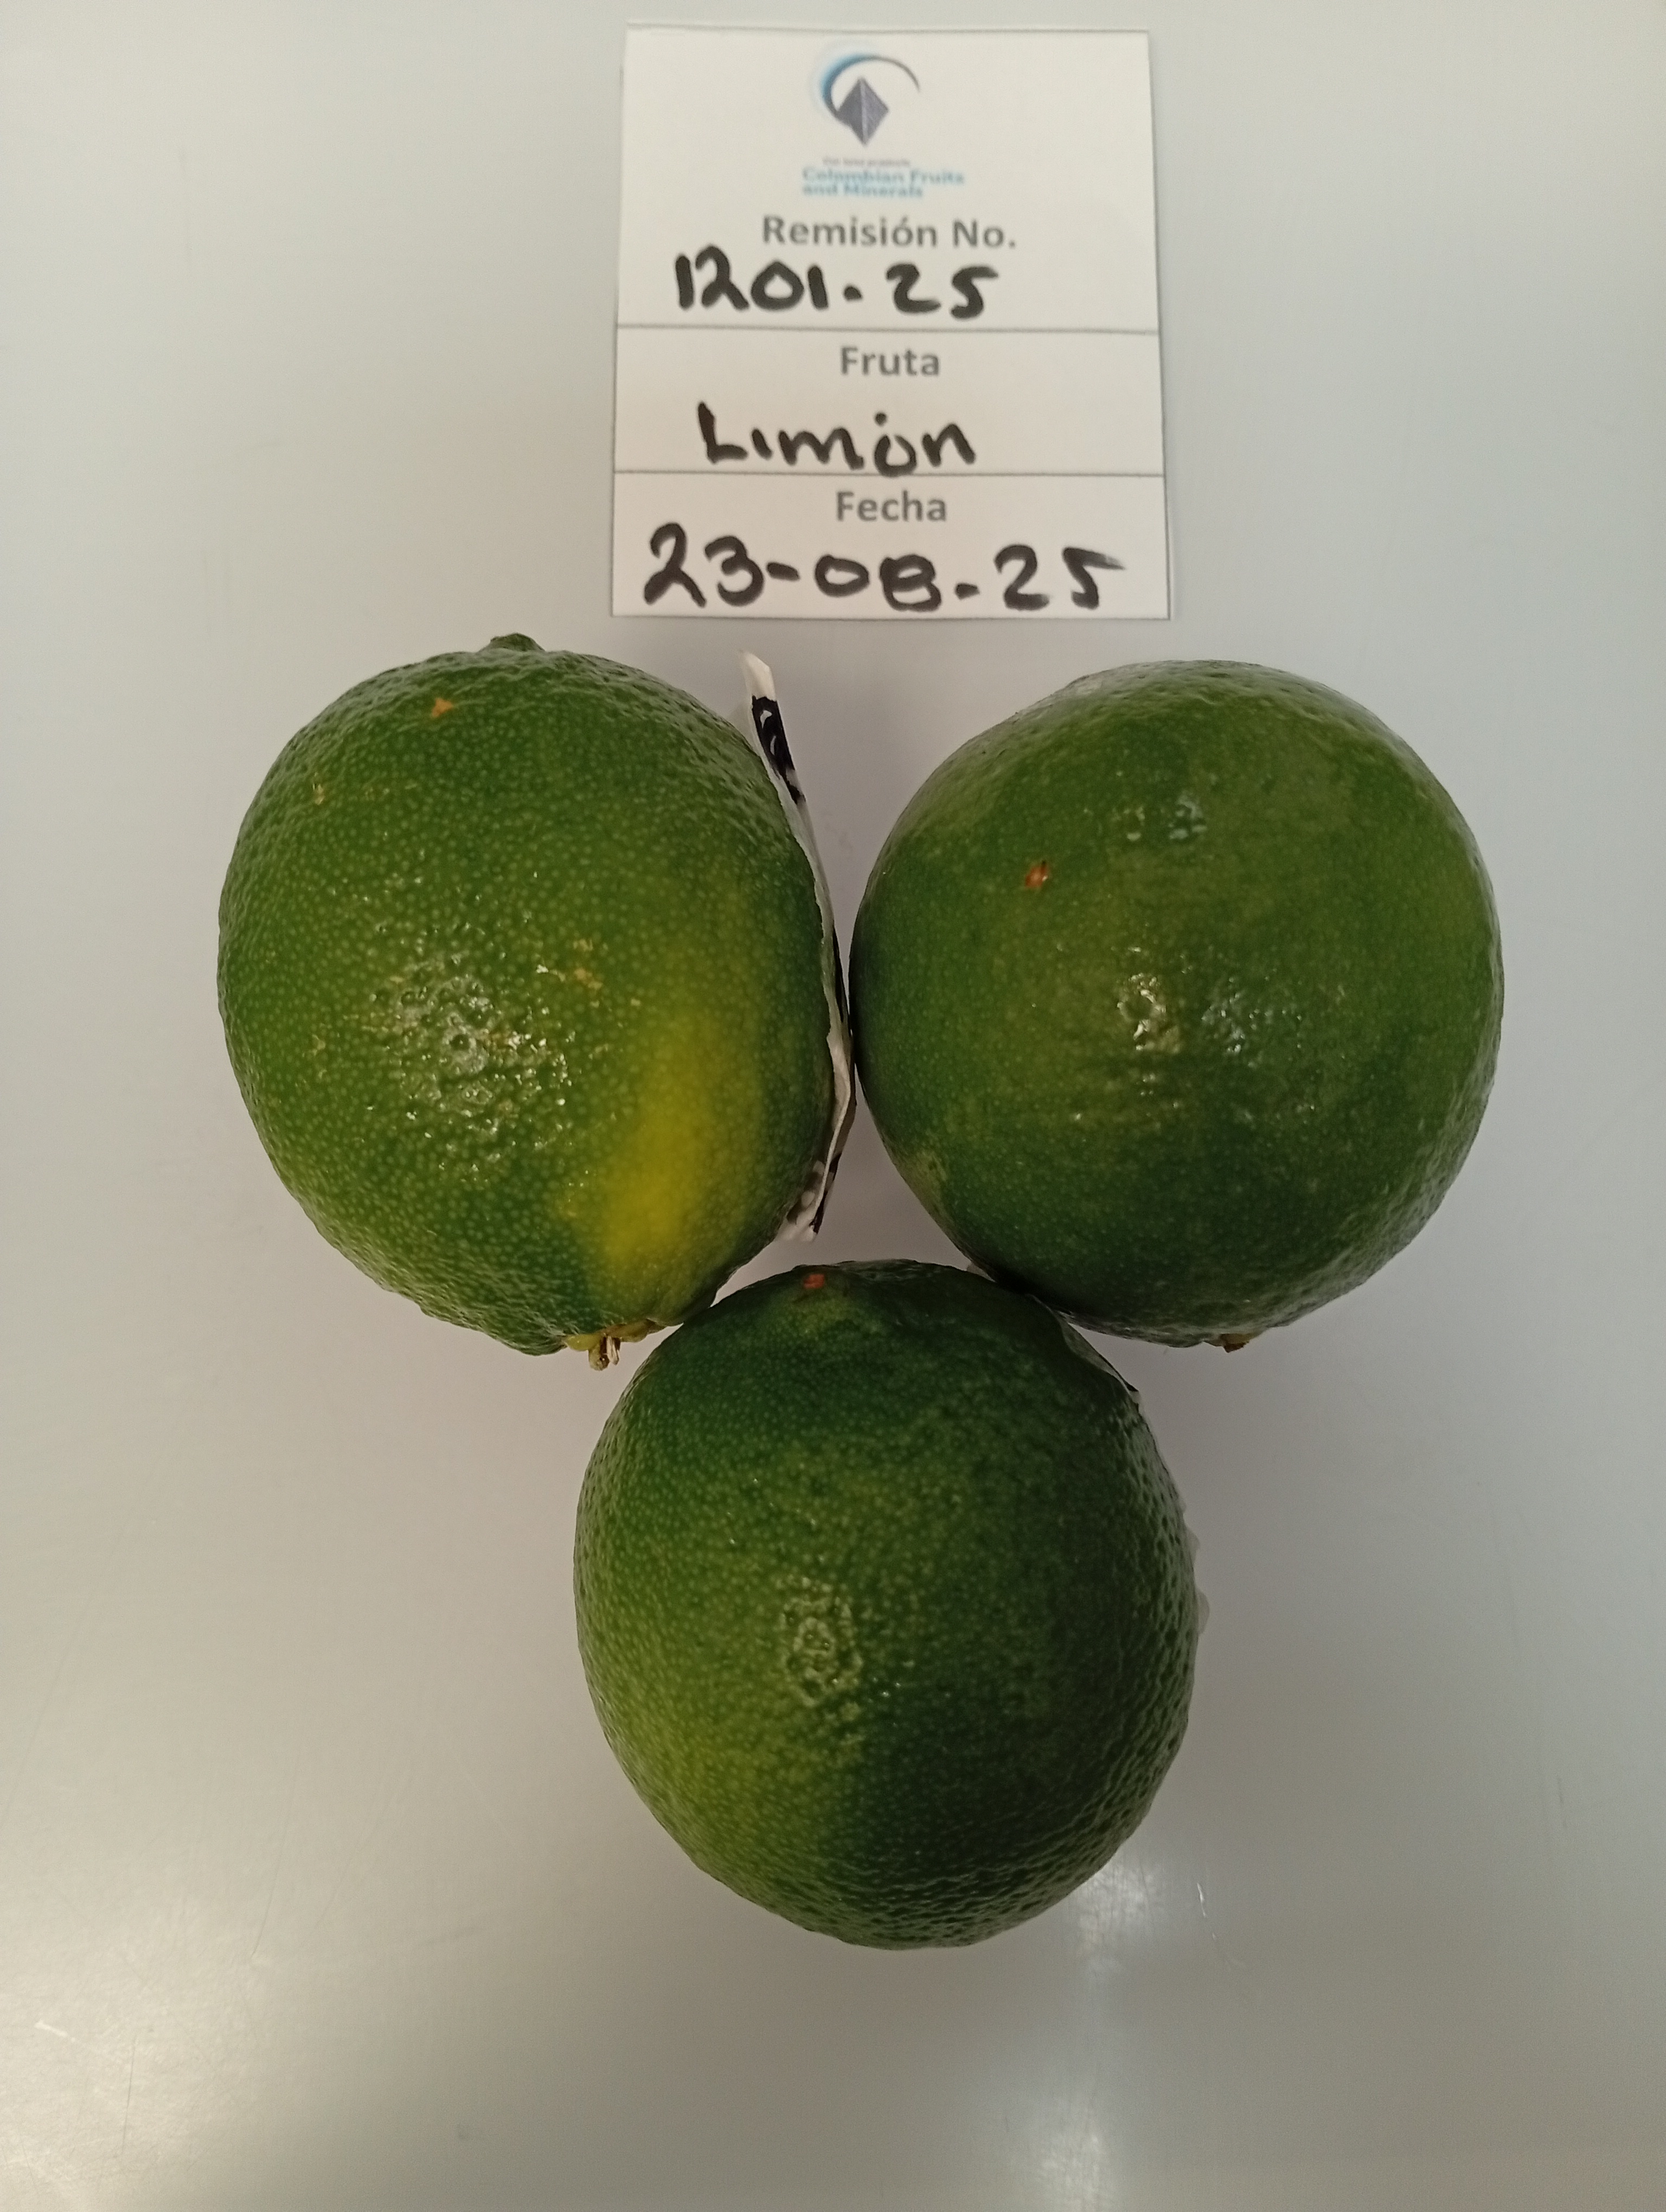 Colombian Fruits
and Minerals
Remisión No.
1201.25
Fruta
Limón
Fecha
23-08-25